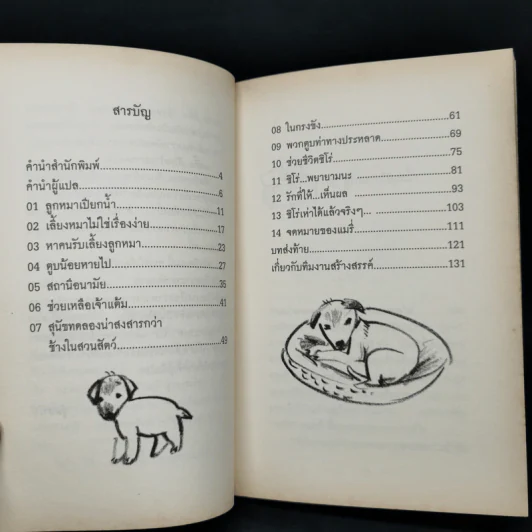 สารบัญ
คำนำสำนักพิมพ์.....................................4
คำนำผู้แปล.....................................6
01 ลูกหมาเปียกน้ำ.....................................11
02 เลี้ยงหมาไม่ใช่เรื่องง่าย.....................17
03 หาคนรับเลี้ยงลูกหมา.....................23
04 ตูบน้อยหายไป.....................27
05 สถานีอนามัย.....................35
06 ช่วยเหลือเจ้าแต้ม.....................41
07 สุนัขทดลองน่าสงสารกว่า
ช้างในสวนสัตว์.....................49
08 ในกรงขัง.....................61
09 พวกตูบท่าทางประหลาด.....................69
10 ช่วยชีวิตชิโร่.....................75
11 ชิโร่...พยายามนะ.....................81
12 รักที่ให้...เห็นผล.....................93
13 ชิโร่เห่าได้แล้วจริงๆ.....................103
14 จดหมายของแมรี่.....................111
บทส่งท้าย.....................121
เกี่ยวกับทีมงานสร้างสรรค์.....................131